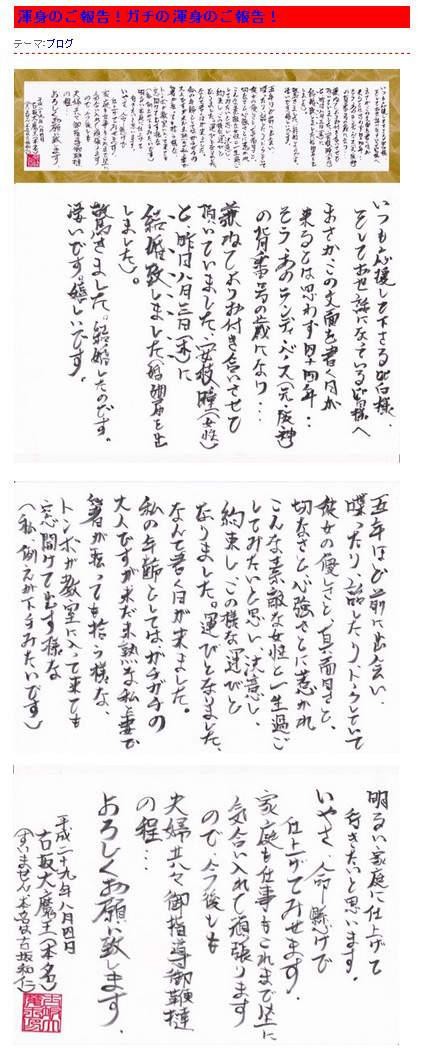 渾身のご報告！ガチの渾身のご報告！
テーマ:ブログ
いつも応援して下さる皆様、
そしてお世話になっている皆様へ
まさかこの文面を書く日が
来るとは思わず四十四年…
そう、あのランディ・バース（元・阪神）
の背番号の歳になり…
兼ねてよりお付き合いさせて
頂いていました、安枝瞳（女性）
と、昨日八月三日（木）に
結婚致しました（婚姻届を出
しました）。
驚きました。結婚したのです。
凄いです。嬉しいです。
五年ほど前に出会い、
喋ったり、話したり、トークしていて
彼女の優しさと、真面目さと、
切なさと心強さとに惹かれ
こんな素敵な女性と一生過ご
してみたいと思い、決意し、
約束し、この様な運びと
なりました。運びとなりました、
なんて書く日が来ました。
私の年齢としてはガチガチの
大人ですが未だ未熟な私と妻で
箸が転っても拾う様な、
トンボが教室に入って来ても
窓開けて出す様な
（私、例えが下手みたいです）
明るい家庭に仕上げて
行きたいと思います。
いやさ、命懸けで
仕上げてみせます。
家庭も仕事もこれまで以上に
気合い入れて頑張ります
ので、今後とも
夫婦共々御指導御鞭撻
の程…
よろしくお願い致します。
平成二十九年八月四日
古坂大魔王（本名）
（すいません、本名は古坂和仁）